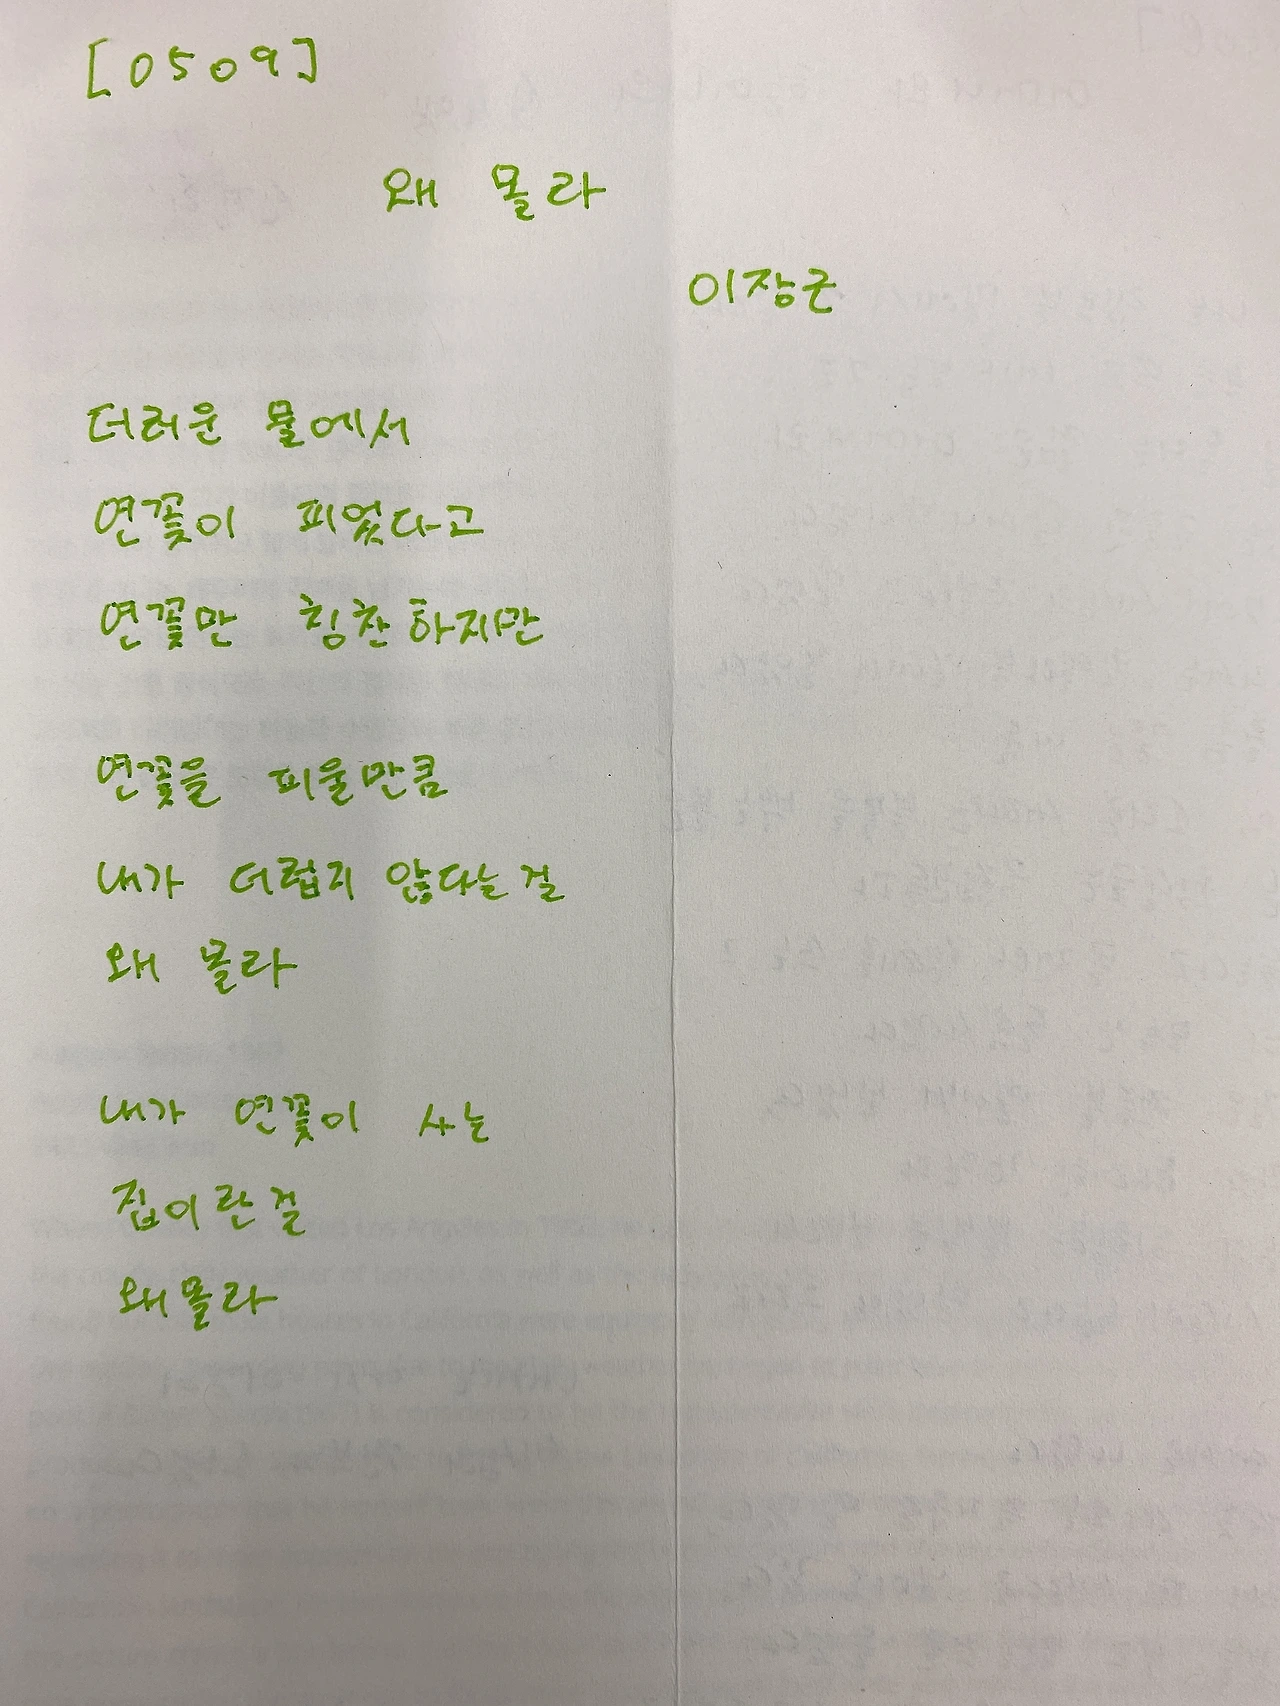 [0509]
왜 몰라
이장근
더러운 물에서
연꽃이 피었다고
연꽃만 칭찬하지만
연꽃을 피울만큼
내가 더럽지 않다는 걸
왜 몰라
내가 연꽃이 사는
집이란 걸
왜 몰라